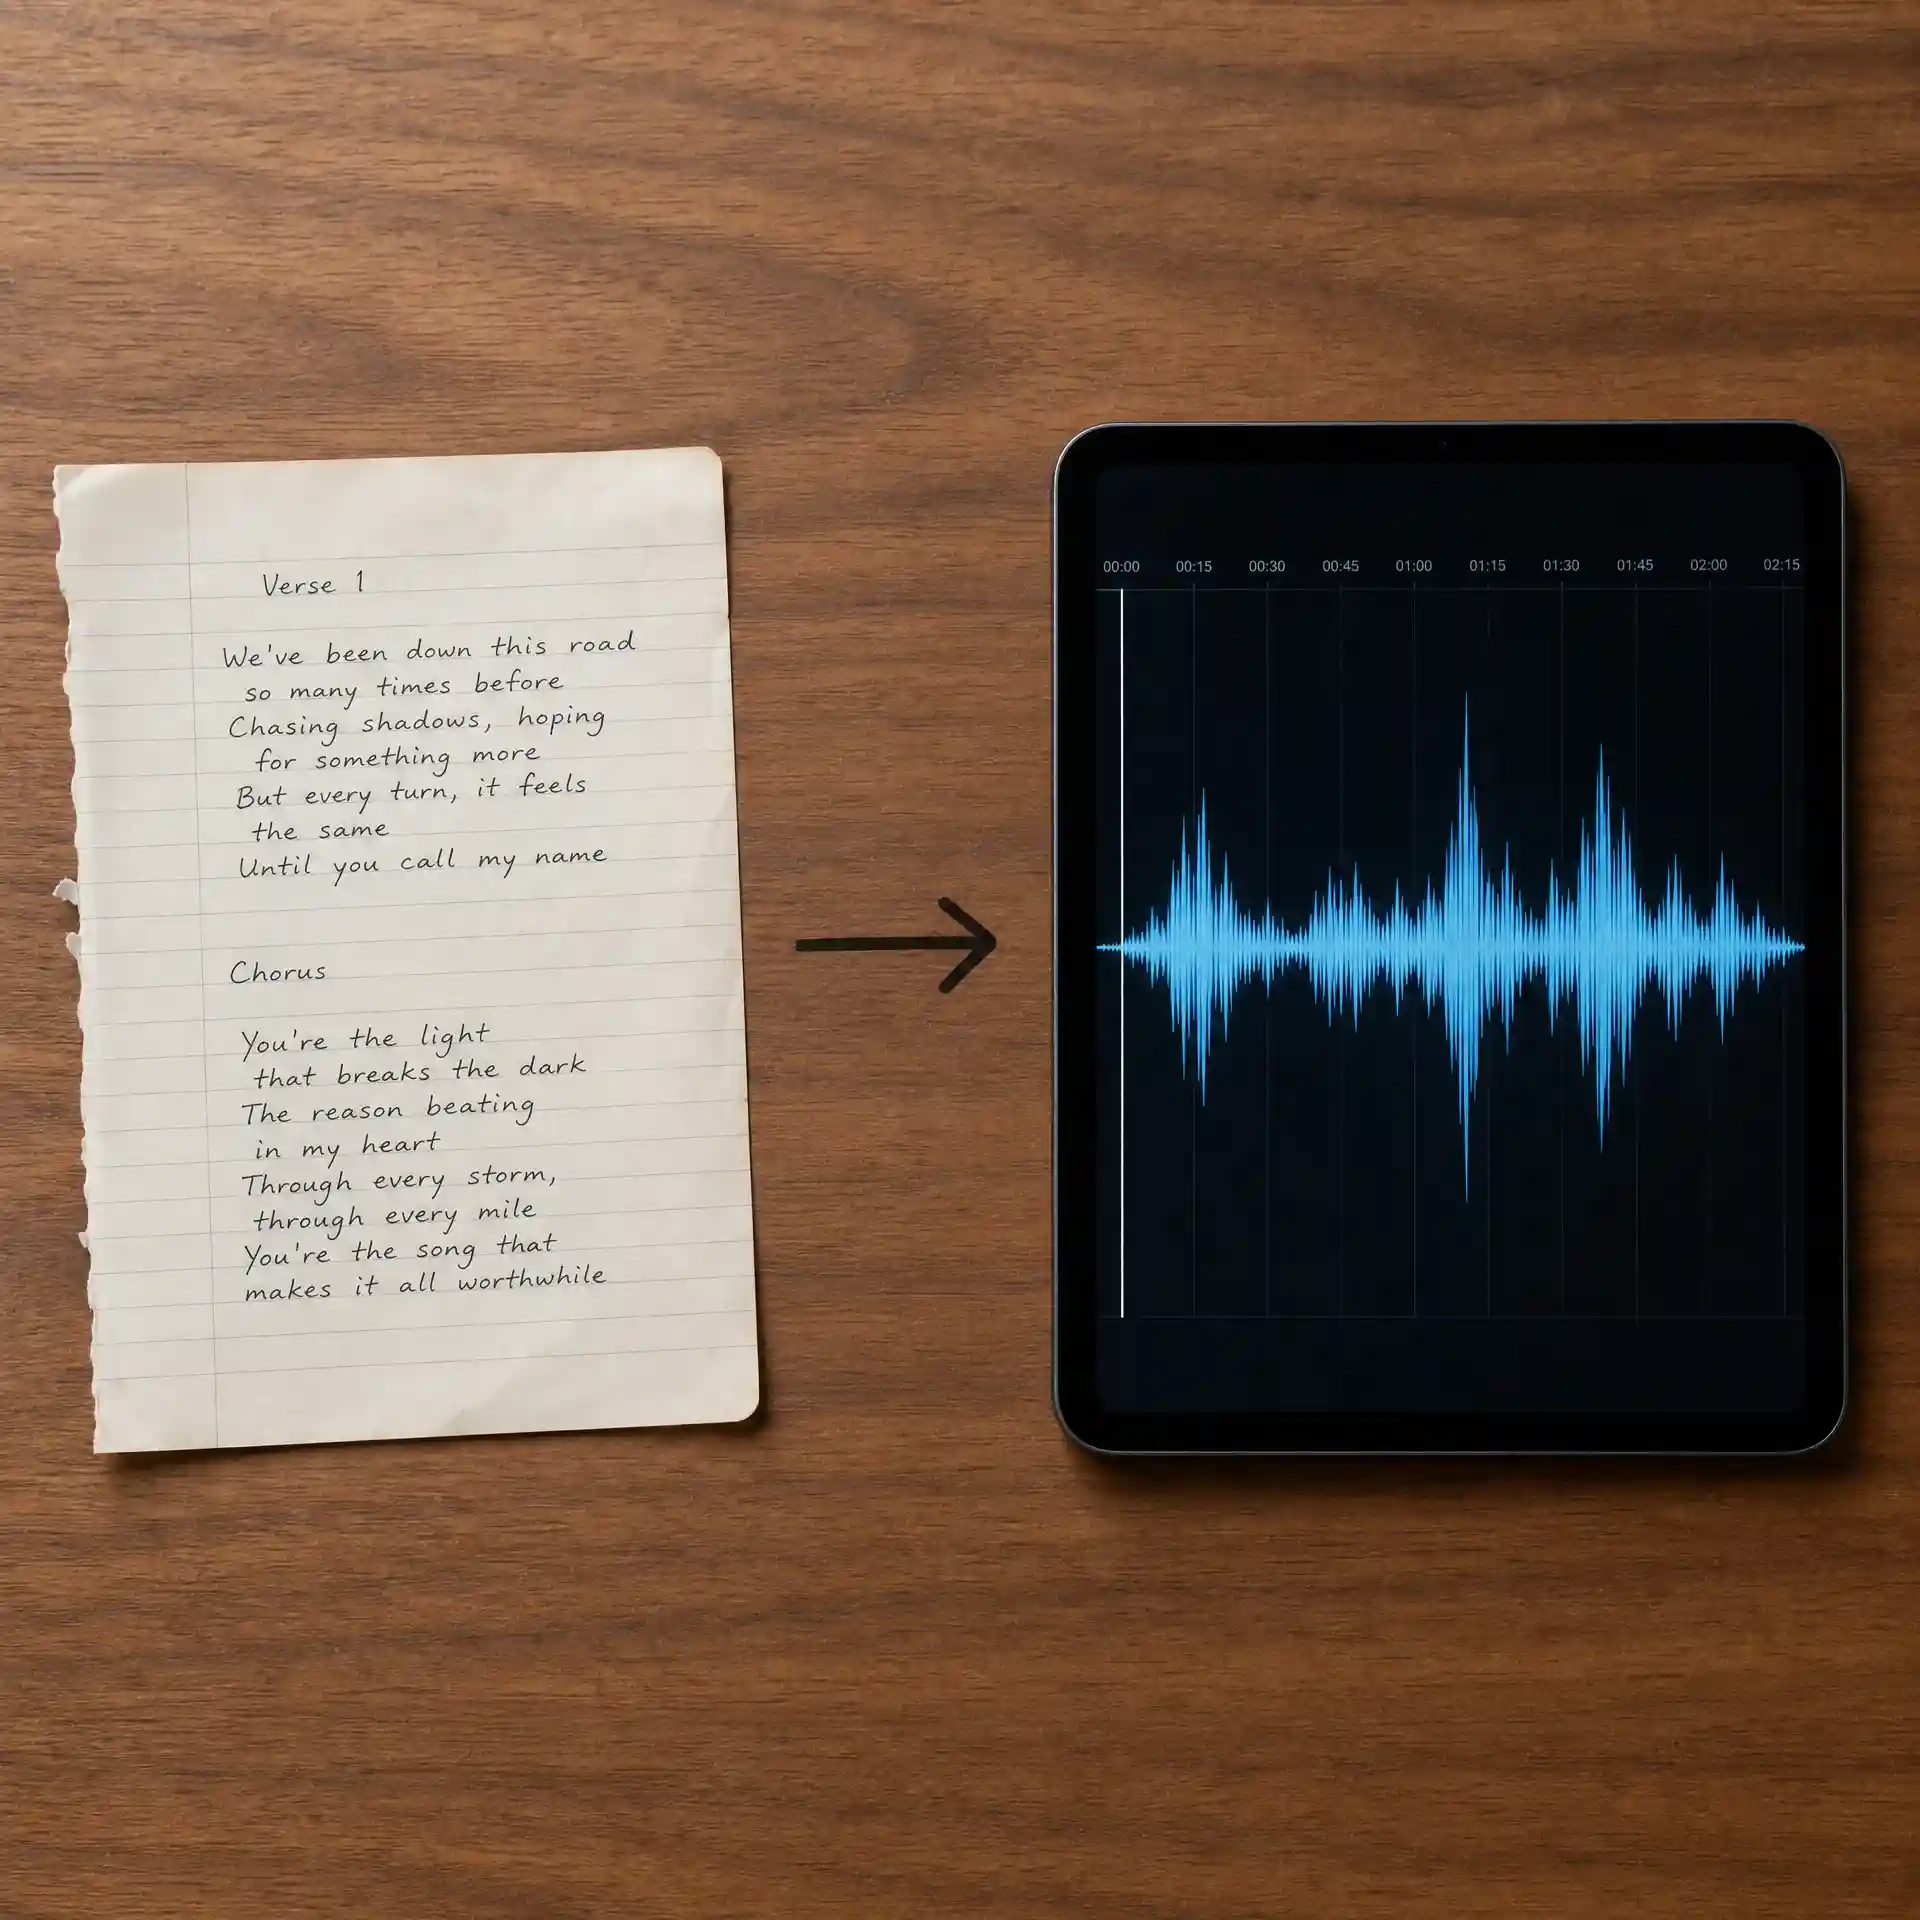 Verse 1
We've been down this road
so many times before
Chasing shadows, hoping
for something more
But every turn, it feels
the same
Until you call my name
Chorus
You're the light
that breaks the dark
The reason beating
in my heart
Through every storm,
through every mile
You're the song that
makes it all worthwhile
00:00 00:15 00:30 00:45 01:00 01:15 01:30 01:45 02:00 02:15